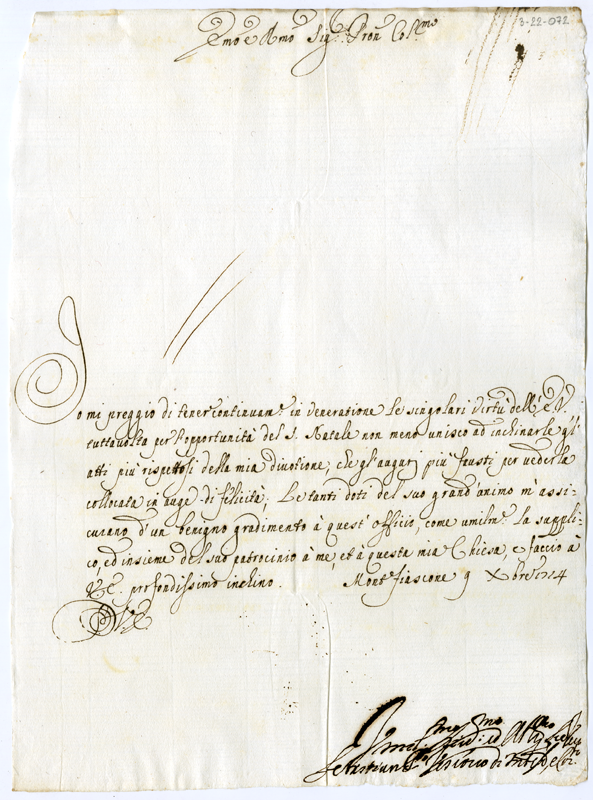 3-22-072
Emo e Rmo Sig.r Pron Col.mo
Io mi preggio di tener continuam.e in veneratione le singolari Virtù dell' E V,
tuttavolta per l'opportunità del S. Natale non meno unisco ad inchinarle gl'
atti più rispettosi della mia divotione, che gl'augurj più fausti per vederla
collocata in auge di felicità; Le tanti doti del suo grand'animo m'assi-
curano d'un benigno gradimento à quest'officio, come umilm.e la suppli-
co, ed insieme del suo patrocinio à me, et à questa mia Chiesa, e faccio à
V.E. profondissimo inchino. Montefiascone 9 Xbre 1714
D V E
Sebastiano